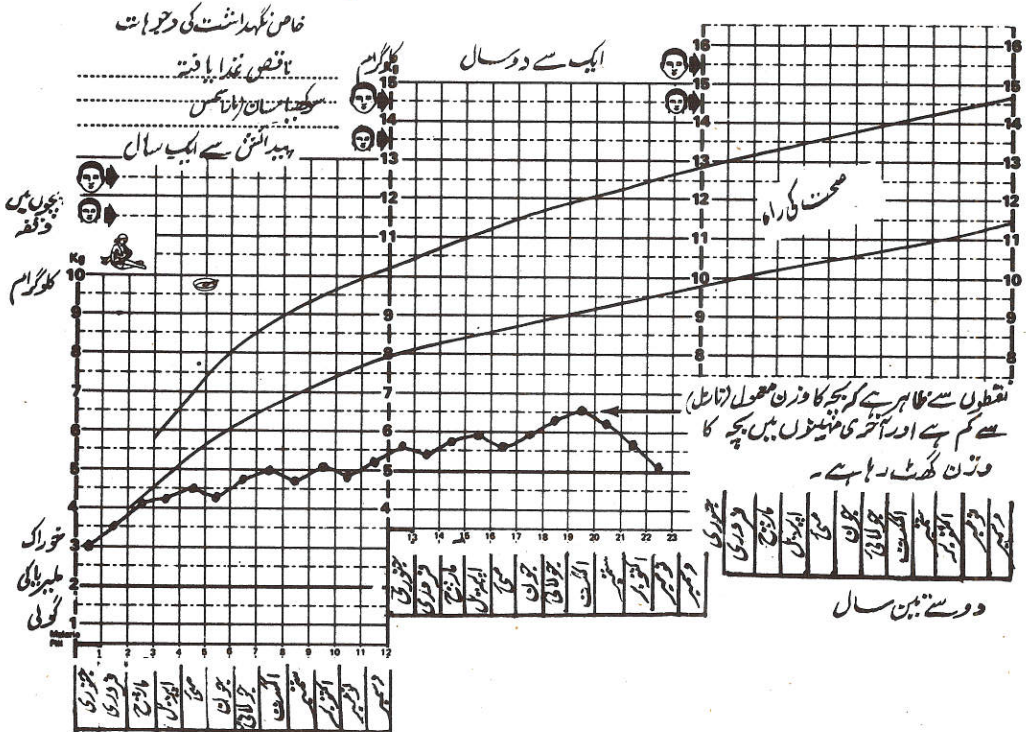 خاص نگہداشت کی وجوہات
ناقص غذا یافتہ
پیدائش سے ایک سال
بچوں میں وقفہ
کلوگرام
Kg
10
9
8
7
6
5
4
3
2
1
خوراک
ملیریا کی
گولی
Malaria
Pill
1 2 3 4 5 6 7 8 9 10 11 12
جنوری فروری مارچ اپریل مئی جون جولائی اگست ستمبر اکتوبر نومبر دسمبر
کلوگرام
ایک سے دو سال
15
14
13
12
11
10
9
8
7
6
5
4
13 14 15 16 17 18 19 20 21 22 23
جنوری فروری مارچ اپریل مئی جون جولائی اگست ستمبر اکتوبر نومبر دسمبر
16
15
14
13
12
11
10
9
8
صحت کی راہ
16
15
14
13
12
11
10
9
8
نقطوں سے ظاہر ہے کہ بچہ کا وزن معمول (نارمل)
سے کم ہے اور آخری مہینوں میں بچہ کا
وزن گھٹ رہا ہے۔
جنوری فروری مارچ اپریل مئی جون جولائی اگست ستمبر اکتوبر نومبر دسمبر
دو سے تین سال